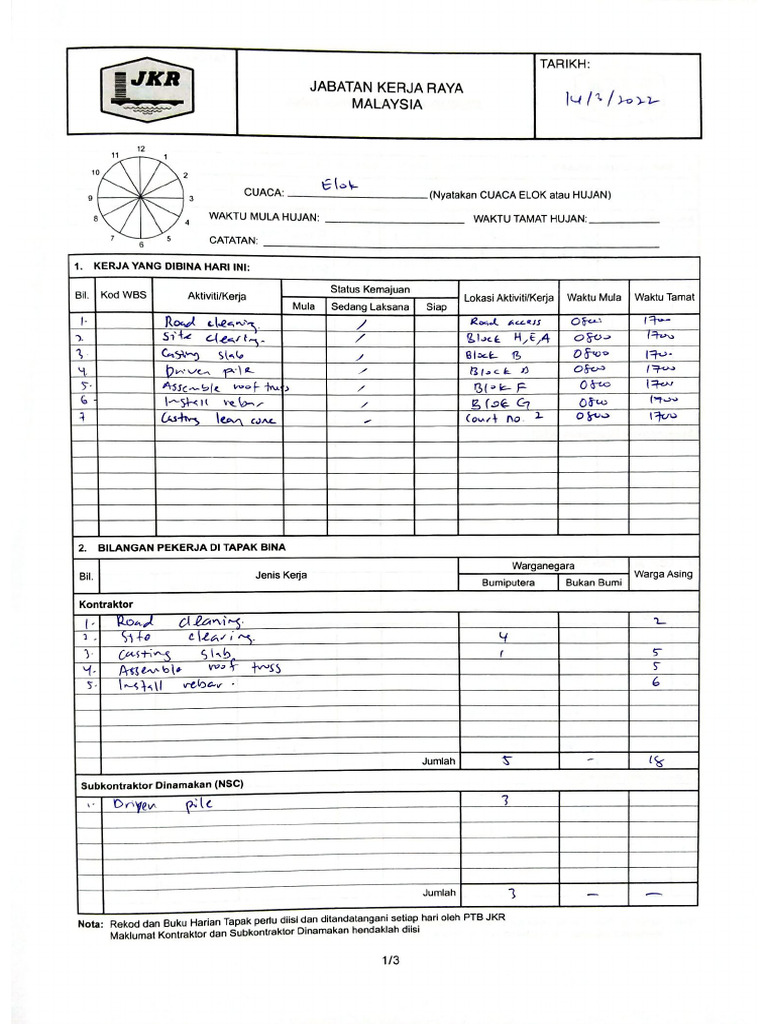 JKR
JABATAN KERJA RAYA
MALAYSIA
TARIKH:
14/3/2022
12
11 1
10 2
9 3
8 4
7 5
6
CUACA: Elok (Nyatakan CUACA ELOK atau HUJAN)
WAKTU MULA HUJAN: WAKTU TAMAT HUJAN:
CATATAN:
1. KERJA YANG DIBINA HARI INI:
Bil. Kod WBS Aktiviti/Kerja Status Kemajuan Lokasi Aktiviti/Kerja Waktu Mula Waktu Tamat
Mula Sedang Laksana Siap
1. Road cleaning. / Road access 0800 1700
2. Site clearing. / Block H,E,A 0800 1700
3. Casting slab / Block B 0800 1700
4. Driven pile / Block D 0800 1700
5. Assemble roof truss / Blok F 0800 1700
6 Install rebar / Blok G 0800 1700
7 Casting lean conc - Court no. 2 0800 1700
2. BILANGAN PEKERJA DI TAPAK BINA
Bil. Jenis Kerja Warganegara Warga Asing
Bumiputera Bukan Bumi
Kontraktor
1. Road cleaning. 2
2. Site clearing. 4
3. Casting slab 1 5
4. Assemble roof truss 5
5. Install rebar. 6
Jumlah 5 - 18
Subkontraktor Dinamakan (NSC)
1. Driven pile 3
Jumlah 3 - -
Nota: Rekod dan Buku Harian Tapak perlu diisi dan ditandatangani setiap hari oleh PTB JKR
Maklumat Kontraktor dan Subkontraktor Dinamakan hendaklah diisi
1/3